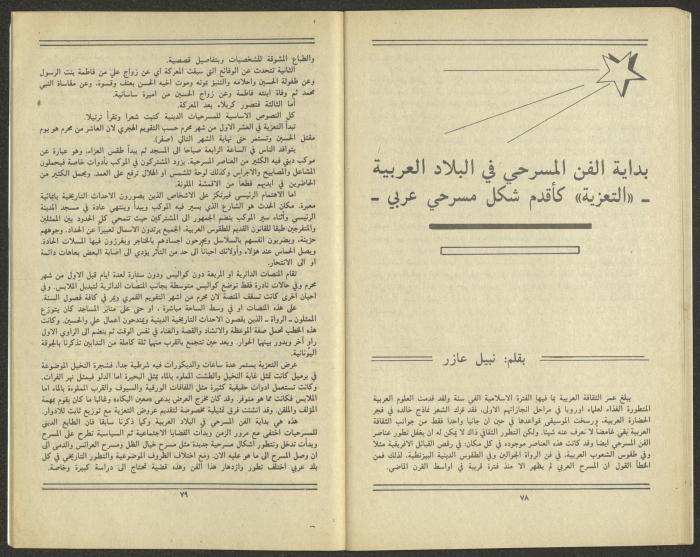 بداية الفن المسرحي في البلاد العربية
ـ «التعزية» كأقدم شكل مسرحي عربي ـ
بقلم: نبيل عازر
يبلغ عمر الثقافة العربية بما فيها الفترة الاسلامية الفي سنة ولقد قدمت العلوم العربية
المتطورة الغذاء لعلماء اوروبا في مراحل انجازاتهم الاولى، فقد ترك الشعر نماذج خالده في فجر
الحضارة العربية، ورسخت الموسيقى قواعدها في حين ان جانبا واحدا فقط من جوانب الثقافة
العربية بقي غامضا لا نعرف عنه شيئا. ولكن التطور الثقافي ذاك لا يمكن له ان يغفل تطور عناصر
الفن المسرحي ايضا وقد كانت هذه العناصر موجوده في كل مكان: في رقص القبائل الافريقية مثلا
وفي طقوس الشعوب العربية، في فن الرواة الجوالين وفي الطقوس الدينية البيزنطية، لذلك فمن
الخطأ القول ان المسرح العربي لم يظهر الا منذ فترة قريبة في اواسط القرن الماضي.
٧٨
والطباع المشوقة للشخصيات وبتفاصيل قصصية.
الثانية تتحدث عن الوقائع التي سبقت المعركة اي عن زواج علي من فاطمة بنت الرسول
وعن طفولة الحسين واحلامه والتنبؤ بموته وموت اخيه الحسن بعنف وقسوة، وعن مقاساة النبي
محمد ثم وفاة ابنته فاطمة وعن زواج الحسين من اميرة ساسانية.
أما الثالثة فتصور كربلاء بعد المعركة.
كل النصوص الاساسية للمسرحيات الدينية كتبت شعرا وتقرأ ترتيلا.
تبدأ التعزية في العشر الاول من شهر محرم حسب التقويم الهجري لان العاشر من محرم هو يوم
مقتل الحسين وتستمر حتى نهاية الشهر التالي (صفر).
يتوافد الناس في الساعة الرابعة صباحا الى المسجد ثم يبدأ طقس العزاء، وهو عبارة عن
موكب ديني فيه الكثير من العناصر المسرحية. يزود المشتركون في الموكب بأدوات خاصة فيحملون
المشاعل والمصابيح والاجراس وكذلك لوحة للشمس او الهلال ترفع على العمد. ويحمل الكثير من
الحاضرين في ايديهم قطعا من الاقمشة الملونة.
اما الاهتمام الرئيسي فيتركز على الاشخاص الذين يصورون الاحداث التاريخية بايمائية
معبرة. مكان الحدث هو الشارع الذي يسير فيه الموكب ويبدأ وينتهي عادة في مسجد المدينة
الرئيسي وأثناء سير الموكب ينضم الجمهور الى المشتركين حيث تنمحي كل الحدود بين الممثلين
والمتفرجين طبقا للقانون القديم للطقوس العربية. الجميع يرتدون الاسمال تعبيراً عن الحداد. وجوههم
حزينة، ويضربون انفسهم بالسلاسل ويجرحون اجسادهم بالخناجر ويغرزون فيها المسلات الحادة.
ويصل الحماس عند هؤلاء وأولائك أحيانا الى حد من التأثر يؤدي الى اصابة البعض بعاهات دائمة
او الى الانتحار.
تقام المنصات الدائرية او المربعة دون كواليس ودون ستارة لعدة ايام قبل الاول من شهر
محرم وفي حالات نادرة فقط توضع كواليس متوسطة بجانب المنصات الدائرية لتبديل الملابس. وفي
احيان أخرى كانت تسقف المنصة لان محرم من اشهر التقويم القمري ويمر في كافة فصول السنة.
على هذه المنصات او في وسط الساحة مباشرة، او حتى على منابر المساجد كان يتوزع
الممثلون ـ الرواة ـ الذين يقصون الاحداث التاريخية الدينية ويمتدحون أعمال علي والحسين. وكانت
هذه الخطب تحمل صفة الموعظة والانشاد والقصة والغناء في نفس الوقت ثم ينضم الى الراوي الاول
راوٍ أخر ويدور بينهما الحوار. وبعد حين تتجمع بالقرب منهما ثلة كاملة من الندابين تذكرنا بالجوقة
اليونانية.
عرض التعزية يستمر عدة ساعات والديكورات فيه شرطية جدا. فشجرة النخيل الموضوعة
في برميل كانت تمثل غابة النخيل والطشت المملوء بالماء يمثل البحيرة اما الدلو فيمثل نهر الفرات.
وكانت تستعمل ادوات حقيقية كثيرة مثل اللفافات الورقية والسيوف والقرب المملوءة بالماء اما
الملابس فكانت مما هو متوفر. وقد كان مخرج العرض يدعى «معين البكاء» وغالبا ما كان يقوم بمهمة
المؤلف والملقن. وقد أنشئت فرق تمثيلية مخصوصة لتقديم عروض التعزية مع توزيع ثابت للادوار.
هذه هي بداية الفن المسرحي في البلاد العربية وكما ذكرنا سابقا فان الطابع الديني
للمسرحيات اختفى مع مرور الزمن وبدأت القضايا الاجتماعية ثم السياسية تطرح على المسرح
وبدأت تدخل وتتطور أشكال مسرحية جديدة مثل مسرح خيال الظل ومسرح العرائس والدمى الى
ان وصل المسرح الى ما هو عليه الان. ومع اختلاف الظروف الموضوعية والتطور التاريخي في كل
بلد عربي اختلف تطور وازدهار هذا الفن وهذه قضية تحتاج الى دراسة كبيرة وخاصة.
٧٩